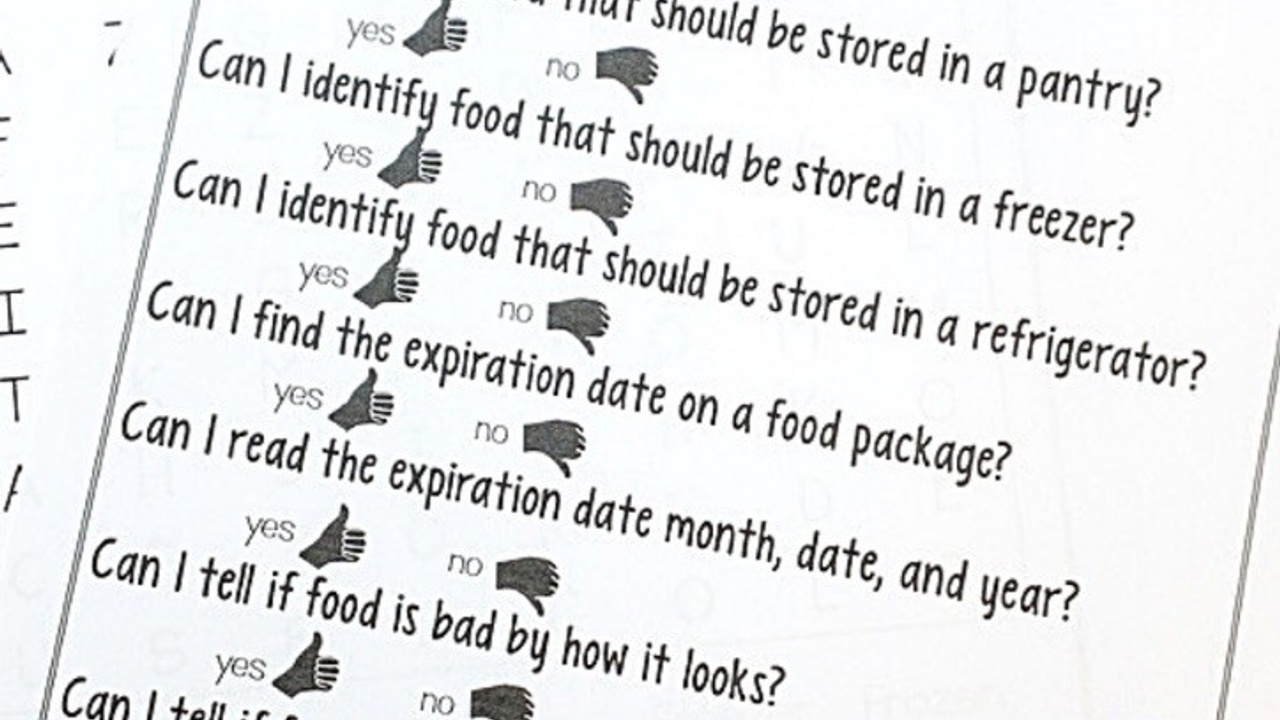 that should be stored in a pantry?
yes no
Can I identify food that should be stored in a freezer?
yes no
Can I identify food that should be stored in a refrigerator?
yes no
Can I find the expiration date on a food package?
yes no
Can I read the expiration date month, date, and year?
yes no
Can I tell if food is bad by how it looks?
yes no
Can I tell if